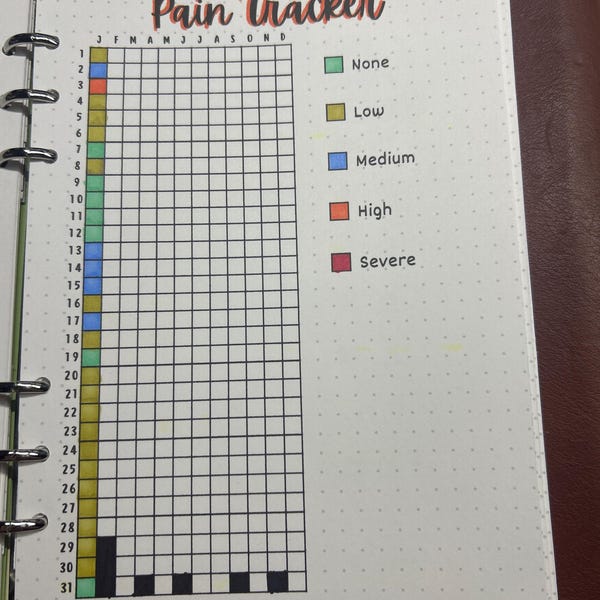 Pain Tracker
J F M A M J J A S O N D
1
2
3
4
5
6
7
8
9
10
11
12
13
14
15
16
17
18
19
20
21
22
23
24
25
26
27
28
29
30
31
None
Low
Medium
High
Severe